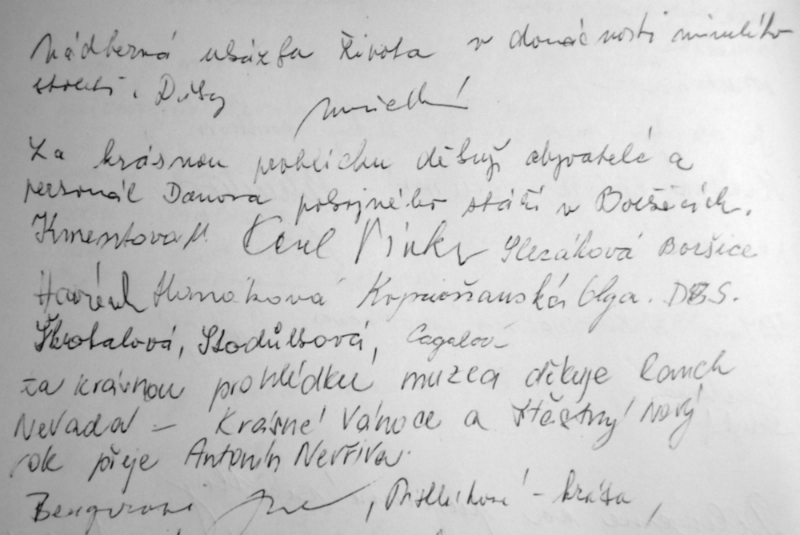 Nádherná ukázka života v domácnosti minulého
století. Díky
Za krásnou prohlídku děkují obyvatelé a
personál Domova pokojného stáří v Boršicích.
Kmentová M Karel Slezáková Boršice
Hanáková Kopřivňanská Olga. DBS.
Škrobalová, Stodůlková, Cagalová
za krásnou prohlídku muzea děkuje Ranch
Nevada – Krásné Vánoce a šťastný Nový
rok přeje Antonín Nevřiva.
– krása,